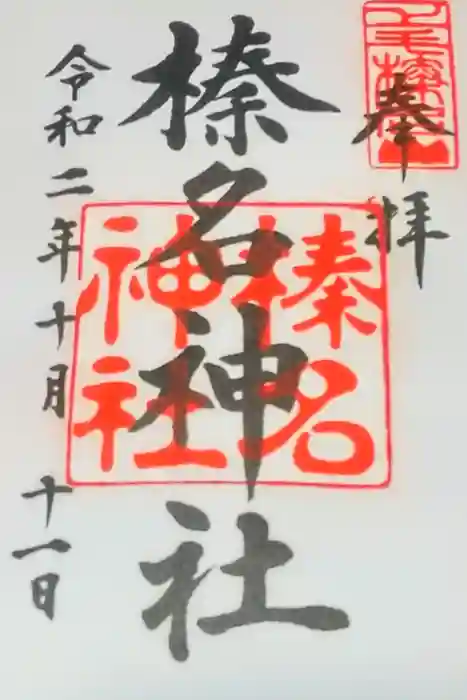 奉拝
榛名神社
令和二年十月十一日
榛名
神社